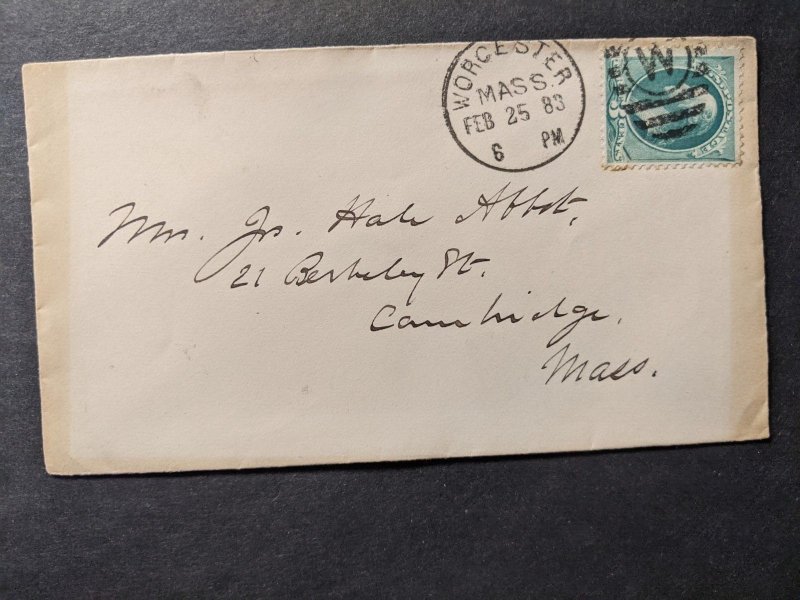 WORCESTER
MASS.
FEB 25 83
6 PM
W
Mr. Js. Hale Abbot,
21 Berkeley St.
Cambridge,
Mass.